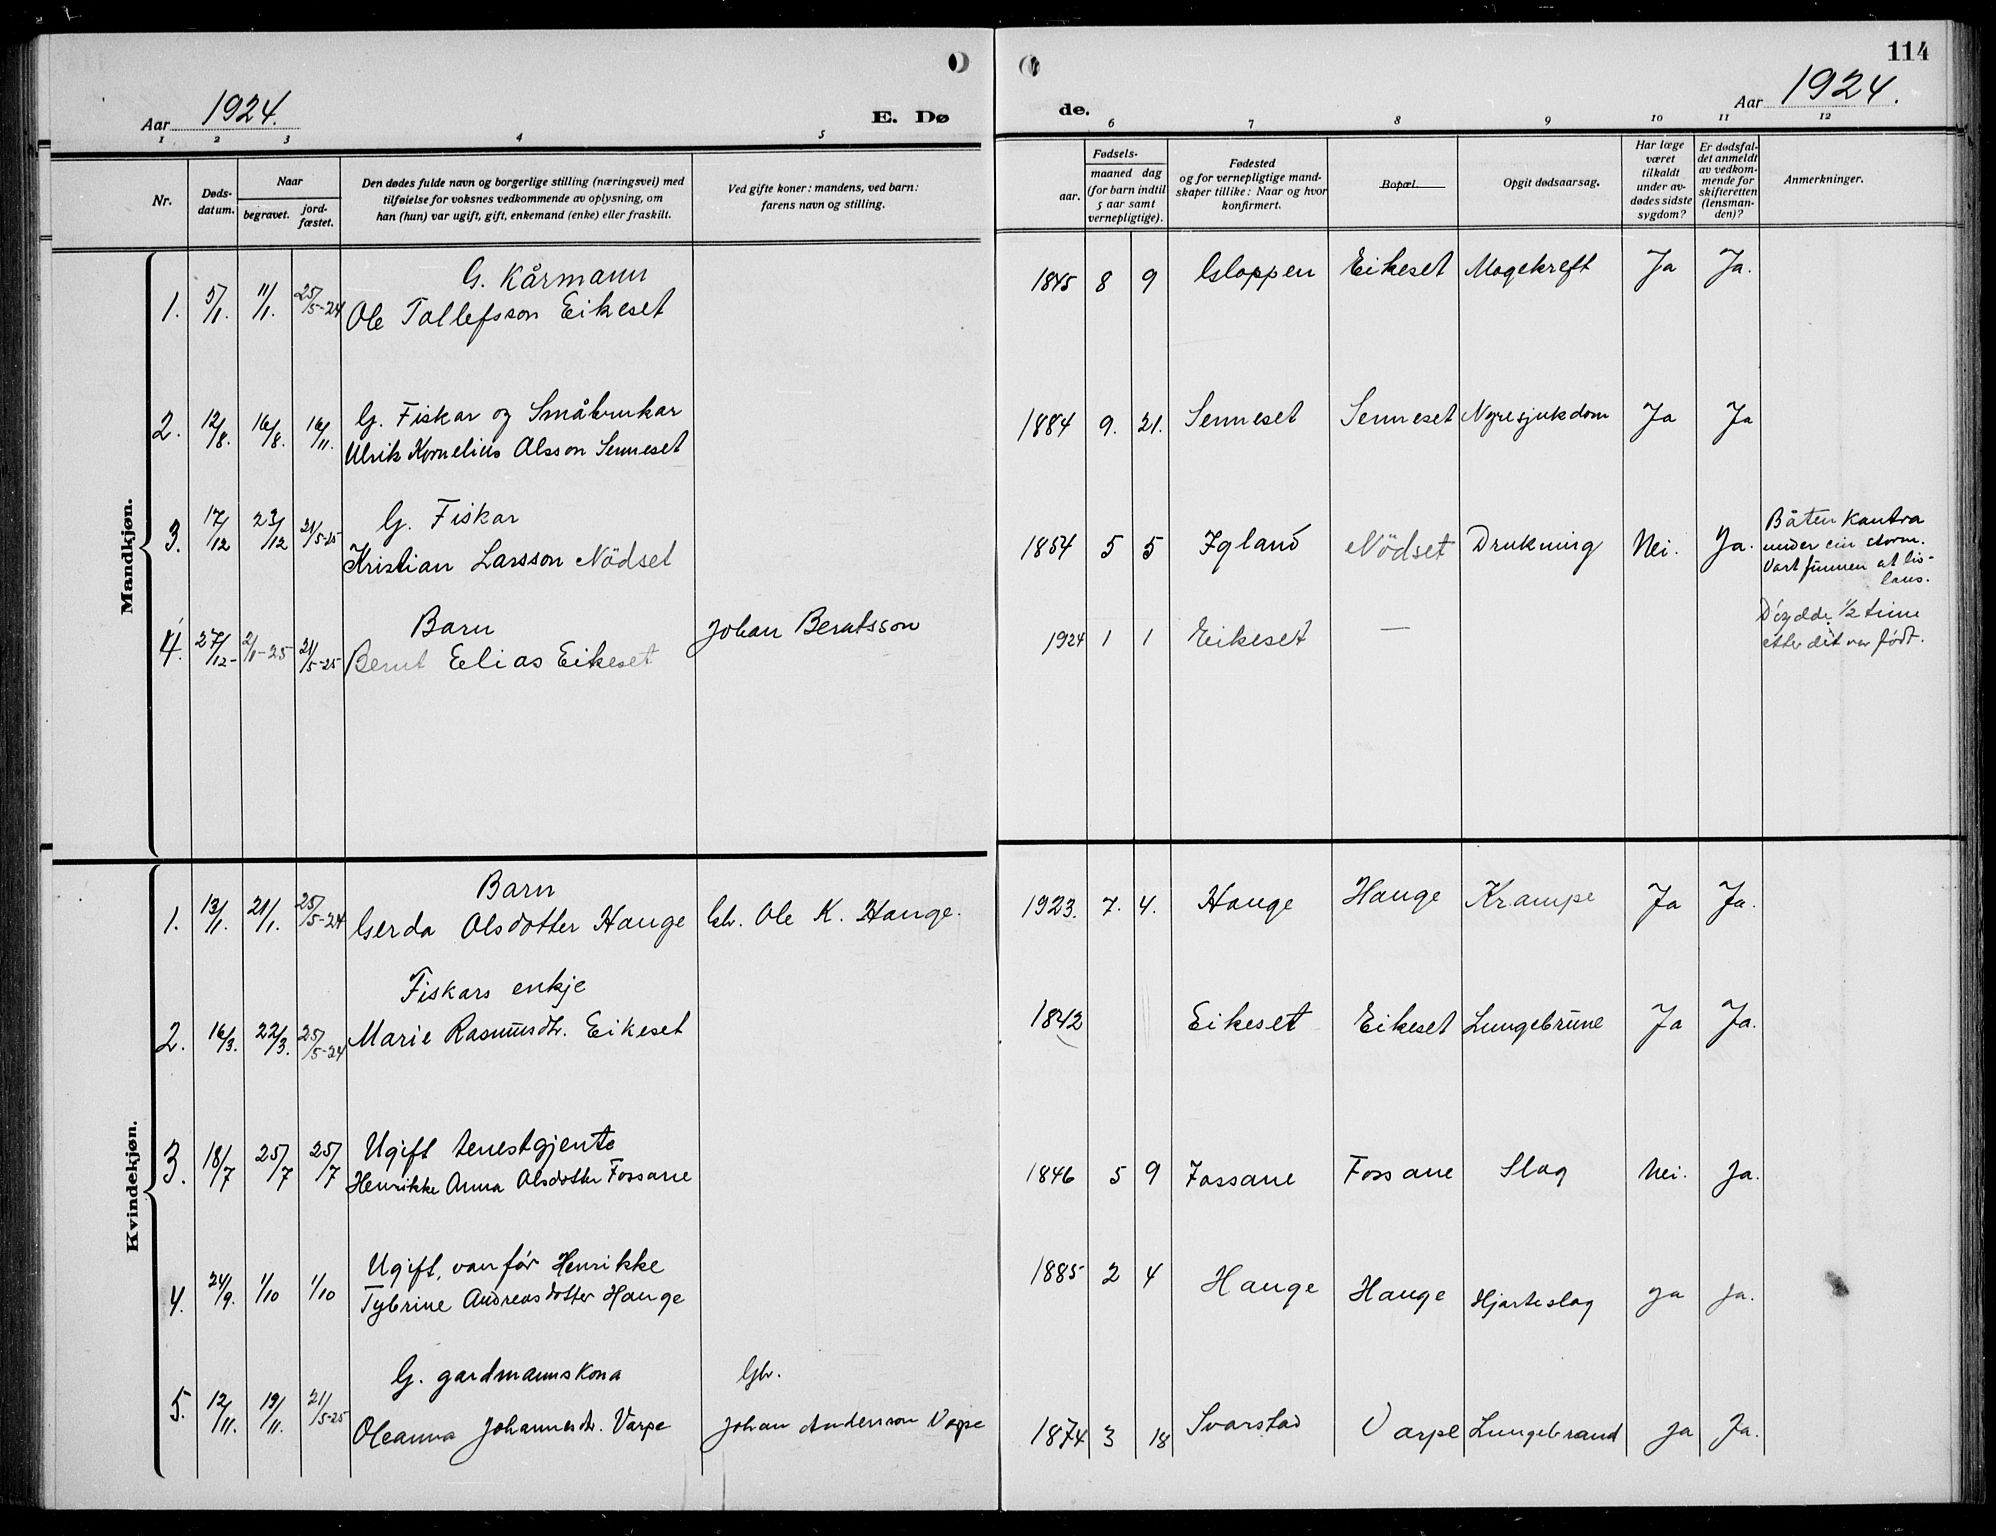 114
Aar 1924.
E. Dø
de.
Aar 1924.
1 2 3 4 5 6 7 8 9 10 11 12
Nr.
Døds-
datum.
Naar
begravet.
jord-
fæstet.
Den dødes fulde navn og borgerlige stilling (næringsvei) med
tilføielse for voksnes vedkommende av oplysning, om
han (hun) var ugift, gift, enkemand (enke) eller fraskilt.
Ved gifte koner: mandens, ved barn:
farens navn og stilling.
Fødsels-
aar.
maaned dag
(for barn indtil
5 aar samt
vernepligtige).
Fødested
og for vernepligtige mand-
skaper tillike: Naar og hvor
konfirmert.
Bopæl.
Opgit dødsaarsag.
Har læge
været
tilkaldt
under av-
dødes sidste
sygdom?
Er dødsfal-
det anmeldt
av vedkom-
mende for
skifteretten
(lensman-
den)?
Anmerkninger.
Mandkjøn.
G. Kårmann
1. 5/1. 11/1. 25/5-24 Ole Tollefsson Eikeset 1845 8 9 Gloppen Eikeset Magekreft Ja Ja.
G. Fiskar og Småbrukar
2. 12/8. 16/8. 16/11. Ulrik Kornelius Olsson Senneset 1884 9. 21. Senneset Senneset Nyresjukdom Ja Ja
G. Fiskar
3. 17/12 23/12 21/5-25 Kristian Larsson Nödset 1854 5 5 Igland Nödset Drukning Nei. Ja.
Båten kantra
under ein storm.
Vart funnen at liv-
laus.
Barn
4. 27/12- 2/1-25 21/5-25 Bernt Elias Eikeset Johan Berntsson 1924 1 1 Eikeset —
Döydde 1/2 time
etter det var født.
Kvindekjøn.
Barn
1. 13/1. 21/1. 25/5-24 Gerda Olsdotter Hauge Gbr. Ole K. Hauge. 1923. 7. 4. Hauge Hauge Krampe Ja Ja.
Fiskars enkje
2. 16/3. 22/3. 25/5-24 Marie Rasmusdtr. Eikeset 1842 Eikeset Eikeset Lungebrune Ja Ja.
Ugift tenestgjente
3. 18/7 25/7 25/7 Henrikke Anna Olsdotter Fossane 1846 5 9 Fossane Fossane Slag Nei. Ja.
Ugift, vanfør Henrikke
4. 24/9. 1/10 1/10 Tybrine Andreasdotter Hauge 1885 2 4 Hauge Hauge Hjarteslag Ja Ja.
G. gardmannskona Gbr.
5. 12/11. 19/11. 21/5-25 Oleanna Johannesdtr. Varpe Johan Andersson Varpe 1874 3 18 Svarstad Varpe Lungebrand Ja Ja.